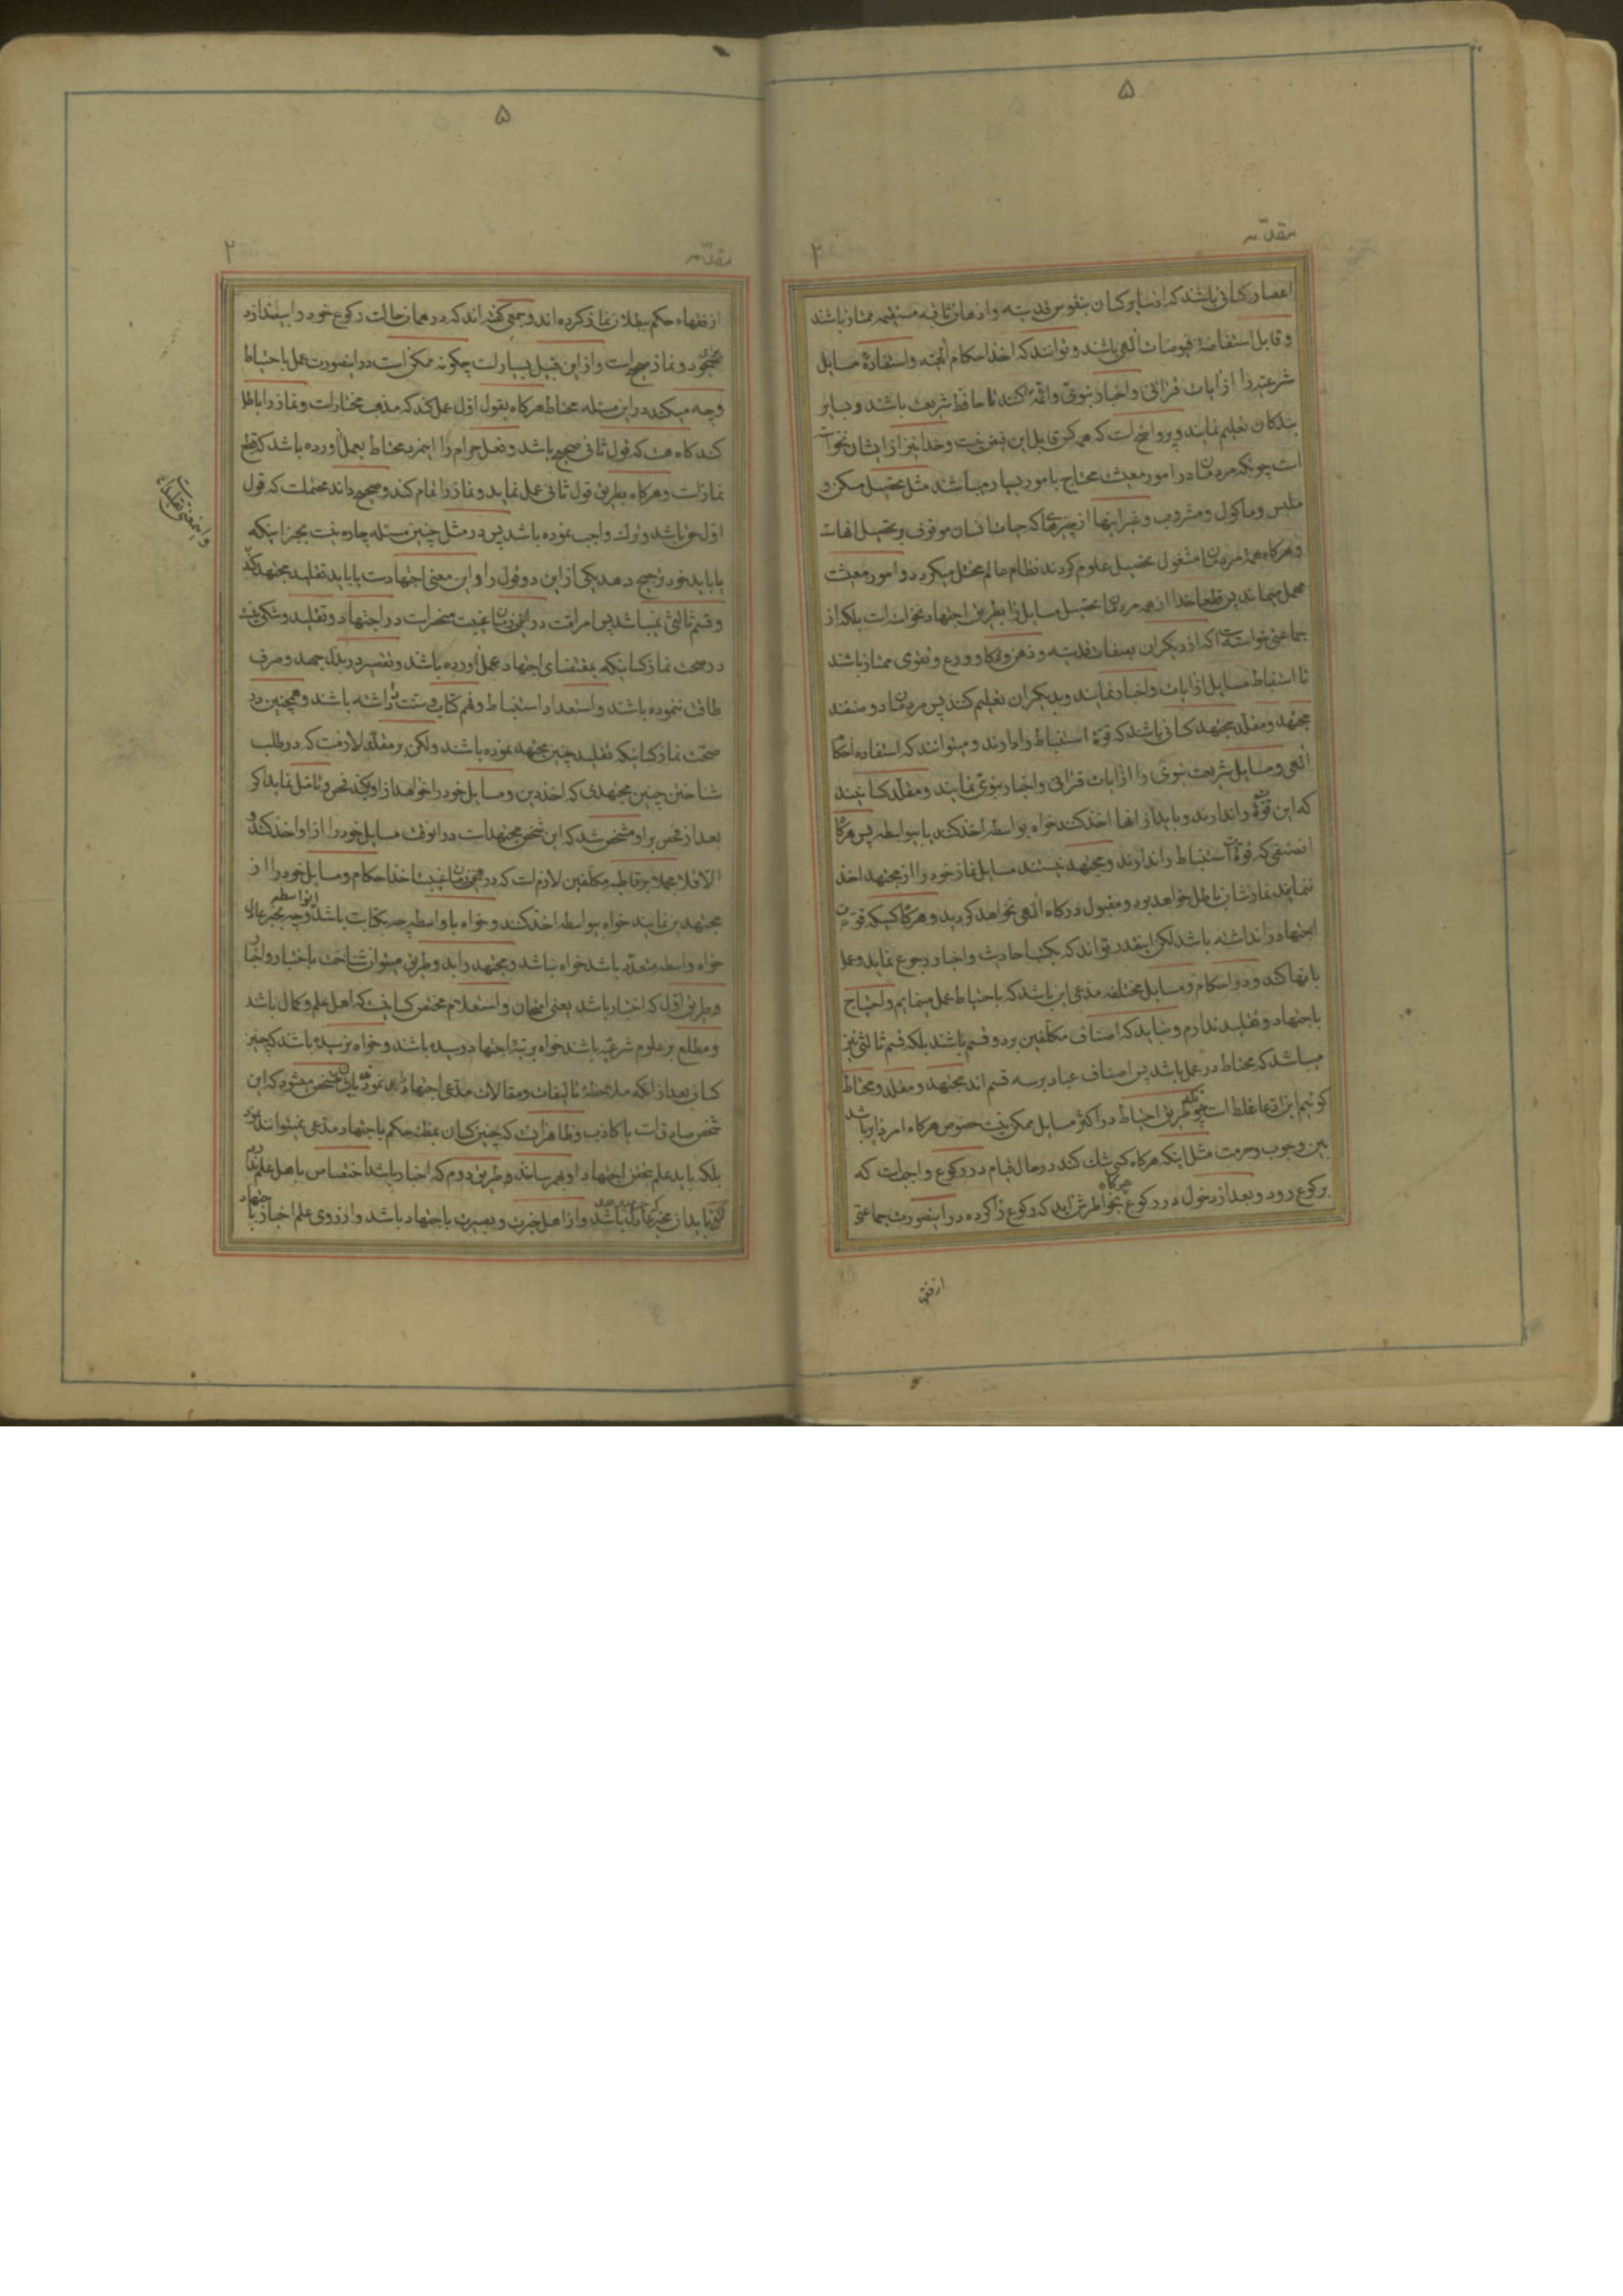 ۵
مقدّمه
۲
اعصار کسانی باشند که از سایر کسان بنفوس قدسیّه و اذهان ثاقبه مستقیمه ممتاز باشند
و قابل استفاضهٔ فیوضات الٰهی باشند و توانند که اخذ احکام الٰهیّه و استفادهٔ مسایل
شرعیّه را از ایات قرانی و اخبار نبوی و ائمّه کنند تا حافظ شریعت باشند و بسایر
بندکان تعلیم نمایند و پر واضح است که همه کس قابل این فیض نیست و خدا نیز از ایشان نخواسته
است چونکه مردمان در امور معیشت محتاج بامور بسیار میباشند مثل تحصیل مسکن و
ملبس و ماکول و مشروب و غیر اینها از چیزهائی که حیات انسان موقوف بر تحصیل انهاست
و هرکاه همهٔ مردمان مشغول تحصیل علوم کردند نظام عالم مختل میکردد و امور معیشت
مهمل میماند پس قطعا خدا از همه مردمان تحصیل مسایل را بطریق اجتهاد نخواسته است بلکه از
جماعتی خواسته است که از دیکران بصفات قدسیّه و ذهن و ذکا و ورع و تقوی ممتاز باشند
تا استنباط مسایل از ایات و اخبار نمایند و بدیکران تعلیم کنند پس مردمان دو صنفند
مجتهد و مقلّد مجتهد کسانی باشند که قوّهٔ استنباط را دارند و میتوانند که استفاده احکام
الٰهی و مسایل شریعت نبوی را از ایات قرانی و اخبار نبوی نمایند و مقلّد کسانیند
که این قوّهٔ را ندارند و باید از انها اخذ کنند خواه بواسطه اخذ کنند یا بیواسطه پس هرکاه
انصنفی که قوّهٔ استنباط را ندارند و مجتهد نیستند مسایل نماز خود را از مجتهد اخذ
ننمایند نمازشان باطل خواهد بود و مقبول درکاه الٰهی نخواهد کردید و هرکاه کسیکه قوّت
اجتهاد را نداشته باشد لکن اینقدر تواند که بکتب احادیث و اخبار رجوع نماید و عمل
بانها کند و در احکام و مسایل مختلفه مدّعی این باشد که باحتیاط عمل مینمایم و احتیاج
باجتهاد و تقلید ندارم و بنابد که اصناف مکلّفین بر دو قسم باشند بلکه قسم ثالثی نیز
میباشد که محتاط در عمل باشد پس اصناف عباد بر سه قسم اند مجتهد و مقلّد و محتاط
کوئیم این ادّعا غلط است طریق احتیاط در اکثر مسایل ممکن نیست خصوص هرکاه امر دایر باشد
بین وجوب و حرمت مثل اینکه هرکاه کسی شک کند در حال قیام در رکوع واجبست که
برکوع رود و بعد از دخول در رکوع هرکاه بخاطرش اید که رکوع را کرده در اینصورت جماعتی
از فقها
۵
مقدّمه
۲
از فقهاء حکم ببطلان نماز کرده اند و جمعی کفته اند که در همان حالت رکوع خود را بیندازد
بسجود و نماز صحیح است و از این قبیل بسیار است چکونه ممکن است در اینصورت عمل باحتیاط
و چه میکند در این مسئله محتاط هرکاه بقول اوّل عمل کند که مذهب مختار است و نماز را باطل
کند کاه هست که قول ثانی صحیح باشد و فعل حرام را اینمرد محتاط بعمل اورده باشد که قطع
نماز است و هرکاه بطریق قول ثانی عمل نماید و نماز را تمام کند و صحیح داند محتملست که قول
اوّل حق باشد و ترک واجب نموده باشد پس در مثل چنین مسئله چاره نیست بجز اینکه
یا باید خود ترجیح دهد یکی از این دو قول را و این معنی اجتهادست یا باید تقلید مجتهد کند
و اینمعنی تقلیدست
و قسم ثالثی نمیباشد پس امر امّت در این زمان غیبت منحصر است در اجتهاد و تقلید و شکی نیست
در صحّت نماز کسانیکه بمقتضای اجتهاد عمل اورده باشند و تقصیر در بذل جهد و صرف
طاقت ننموده باشند و استعداد استنباط و فهم کتاب و سنّت را داشته باشند و همچنین در
صحّت نماز کسانیکه تقلید چنین مجتهد نموده باشند ولکن بر مقلّد لازمست که در طلب
شناختن چنین مجتهدی که اخذ دین و مسایل خود را خواهد از او بکند فحص و تامّل نماید اکر
بعد از فحص بر او مشخص شد که این شخص مجتهدست در انوقت مسایل خود را از او اخذ کند و
الّا فلا مجملا بر قاطبه مکلّفین لازم است که در زمان غیبت اخذ احکام و مسایل خود را از
مجتهدین نمایند خواه بیواسطه اخذ کنند و خواه با واسطه چه انواسطه بکتابت باشد و چه بمخبر عادل
خواه واسطه متعدّد باشد خواه نباشد و مجتهد را بدو طریق میتوان شناخت باختبار و اخبار
و طریق اوّل که اختبار باشد یعنی امتحان و استعلام مختص کسانیست که اهل علم و کمال باشند
و مطلع بر علوم شرعیّه باشند خواه برتبهٔ اجتهاد رسیده باشند و خواه نرسیده باشند که چنین
کسان بعد از انکه ملاحظهٔ تالیفات و مقالات مدّعی اجتهاد را نمودند بایشان مشخص میشود که این
شخص صادق است یا کاذب و ظاهر انست که چنین کسان بمظنّه حکم باجتهاد مدّعی نمیتوانند نمود
بلکه باید علم بتحقق اجتهاد او بهم رسانند و طریق دوم که اخبار باشد اختصاص باهل علم ندارد
باید از مخبر عادل باشد و از اهل خبرت و بصیرت باجتهاد باشد و از روی علم اخبار باجتهاد